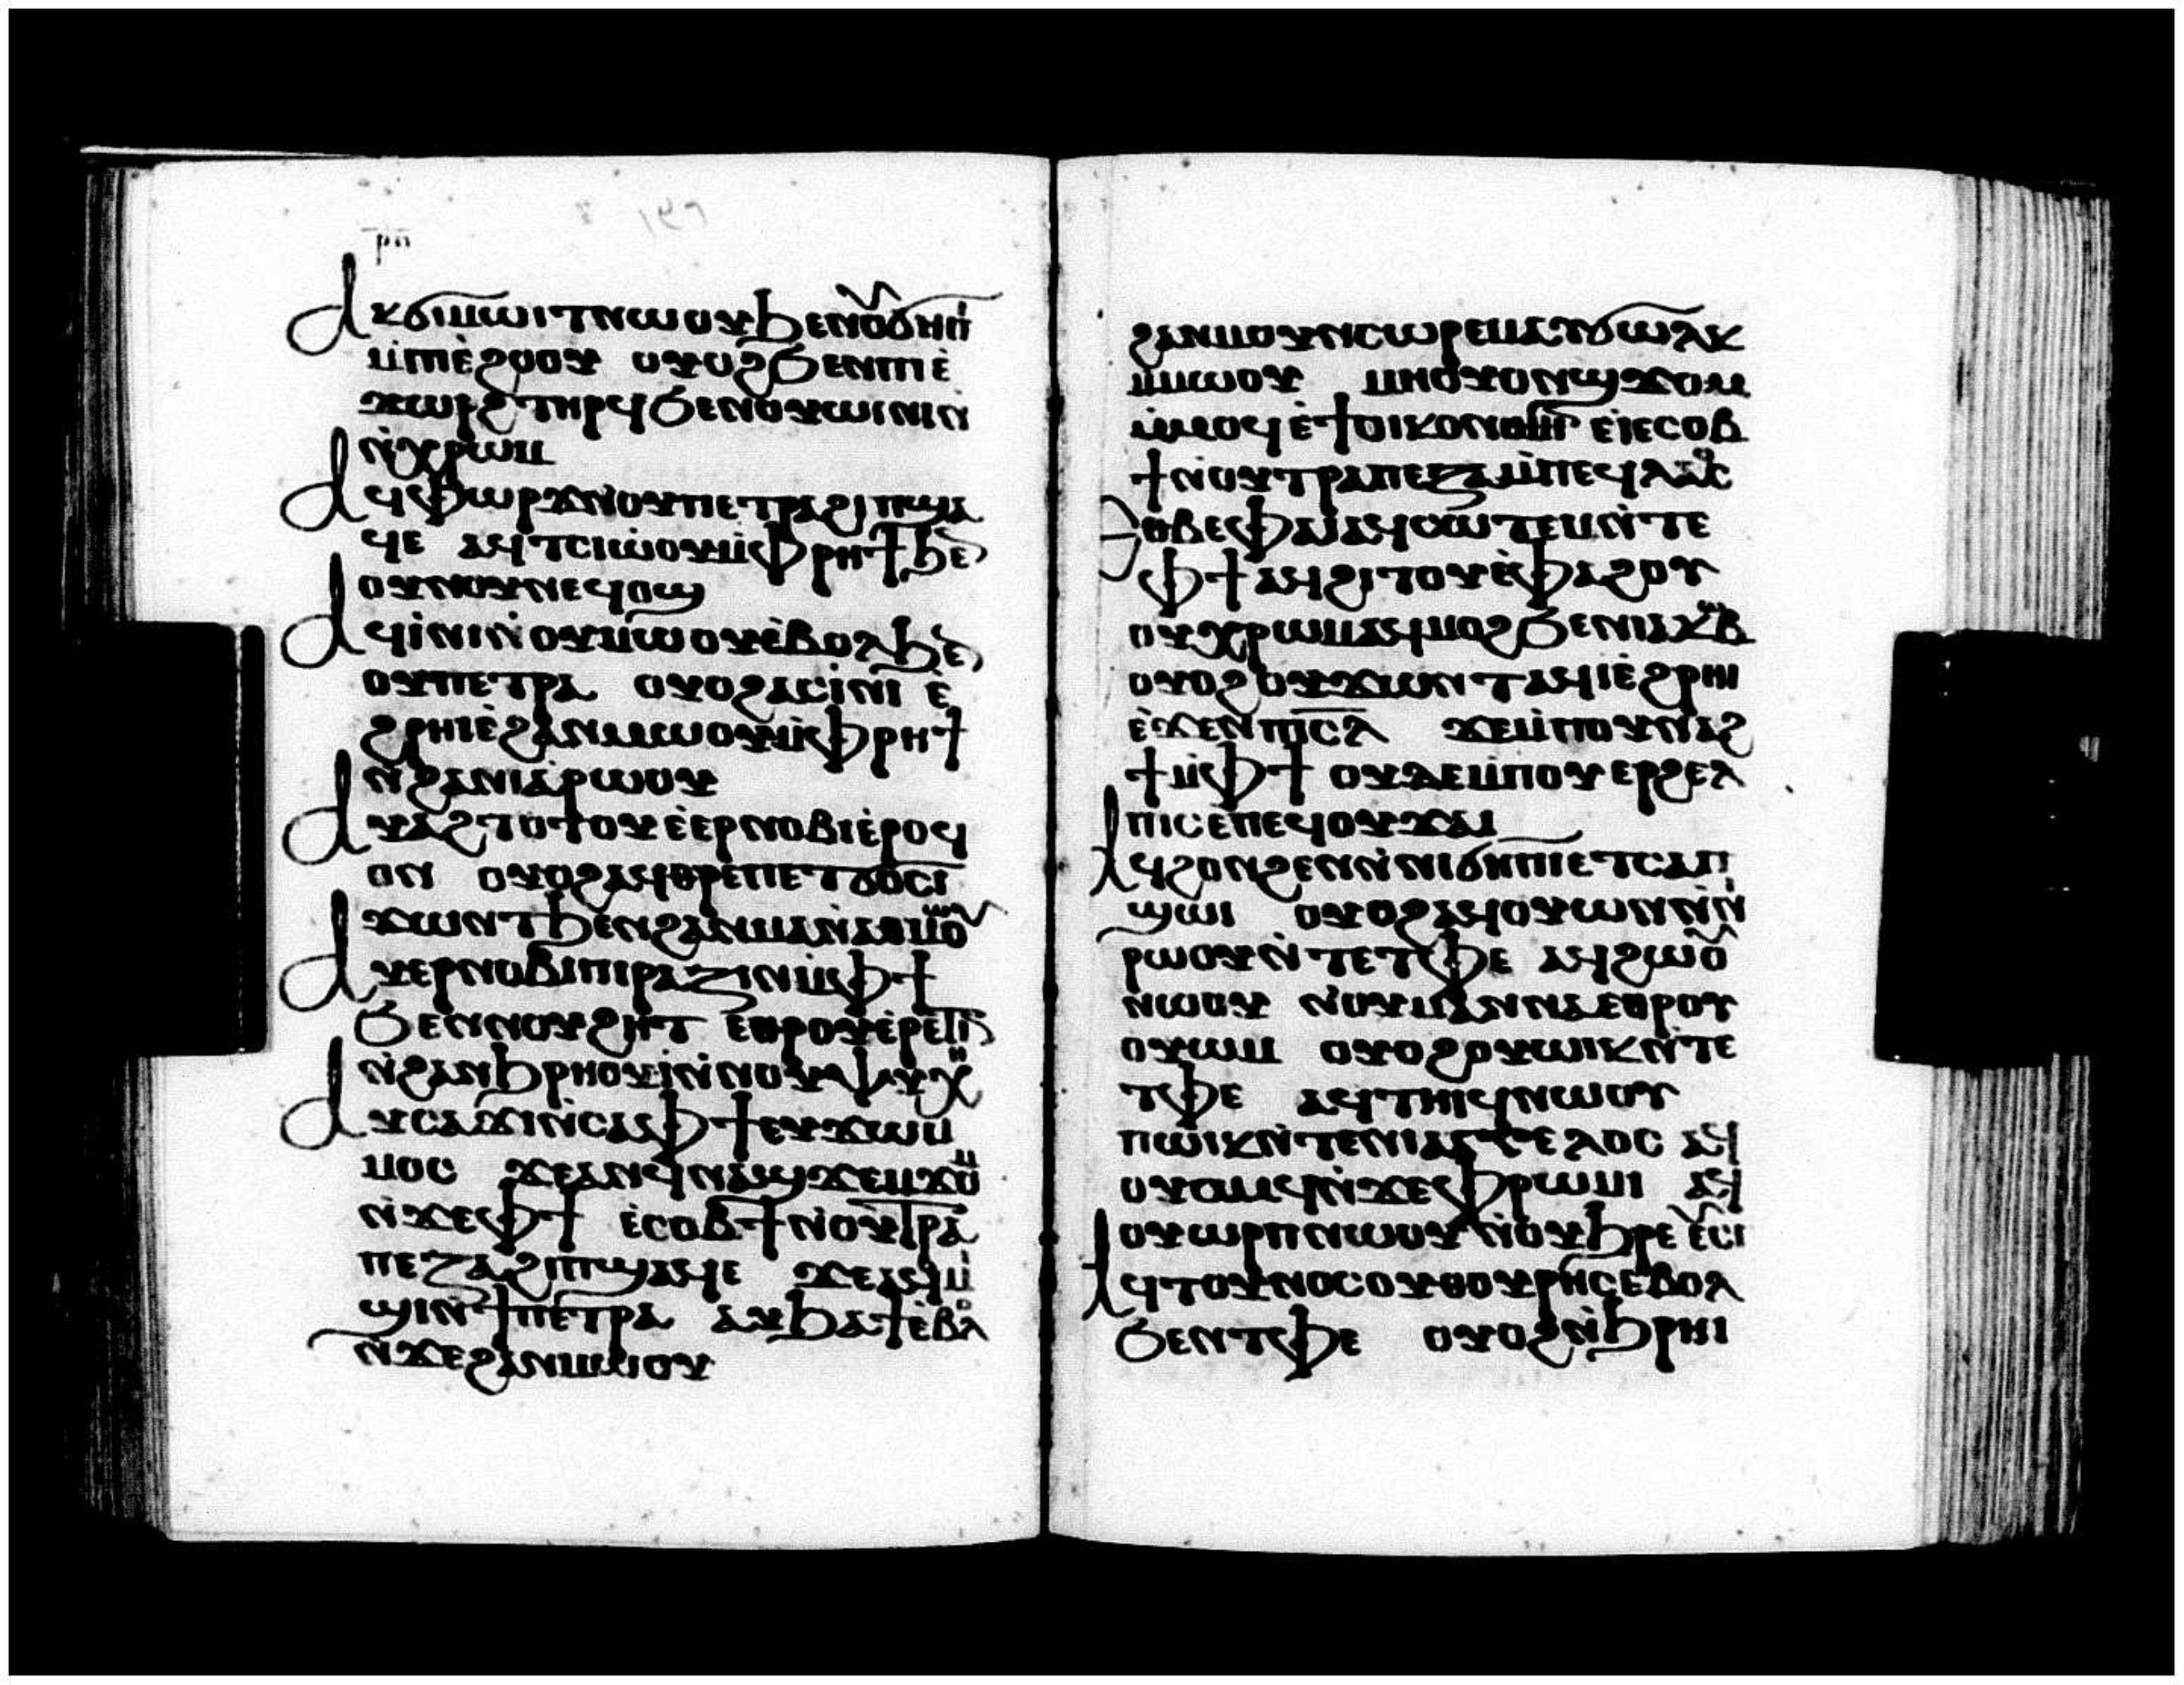 ⲣⲡ
ⲁⲕϭⲓⲙⲱⲓⲧⲛⲱⲟⲩϧⲉⲛⲟⲩϭⲏⲡⲓ
ⲙ̀ⲡⲓⲉ̀ϩⲟⲟⲩ ⲟⲩⲟϩϧⲉⲛⲡⲓⲉ̀
ϫⲱⲣϩ ⲧⲏⲣϥϧⲉⲛⲟⲩⲱⲓⲛⲓ
ⲛ̀ⲭⲣⲱⲙ
ⲁϥⲫⲱⲣϫⲛ̀ⲟⲩⲡⲉⲧⲣⲁϩⲓⲡϣⲁ
ϥⲉ ⲁϥⲧⲥⲓⲱⲟⲩⲙ̀ⲫⲣⲏϯϧⲉⲛ
ⲟⲩⲛⲟⲩⲛⲉϥⲟϣ
ⲁϥⲓ̀ⲛⲓⲛ̀ⲟⲩⲙⲱⲟⲩⲉ̀ⲃⲟⲗϧⲉⲛ
ⲟⲩⲡⲉⲧⲣⲁ ⲟⲩⲟϩⲁϥⲓ̀ⲛⲓ ⲉ̀
ϩⲣⲏⲓⲉ̀ϩⲁⲛⲙⲱⲟⲩⲙ̀ⲫⲣⲏϯ
ⲛ̀ϩⲁⲛⲓⲁⲣⲱⲟⲩ
ⲁⲩⲁϩⲧⲟⲧⲟⲩⲉ̀ⲉⲣⲛⲟⲃⲓⲉ̀ⲣⲟϥ
ⲟⲛ ⲟⲩⲟϩⲁϥⲑⲣⲉⲡⲉⲧϭⲟⲥⲓ
ϫⲱⲛⲧϧⲉⲛϩⲁⲛⲙⲁⲛ̀ⲁⲑⲙⲱⲟⲩ
ⲁⲩⲉⲣⲡⲓⲣⲁⲍⲓⲛⲙ̀ⲫϯ
ϧⲉⲛⲛⲟⲩϩⲏⲧ ⲉⲑⲣⲟⲩⲉ̀ⲣⲉⲧⲓⲛ
ⲛ̀ϩⲁⲛϧⲣⲏⲟⲩⲓ̀ⲛ̀ⲛⲟⲩⲯⲩⲭⲏ
ⲁⲩⲥⲁϫⲓⲛ̀ⲥⲁⲫϯⲉⲩϫⲱⲙ
ⲙⲟⲥ ϫⲉⲁⲛϥⲛⲁϣϫⲉⲙϫⲟⲙ
ⲛ̀ϫⲉⲫϯ ⲉ̀ⲥⲟⲃϯⲛ̀ⲟⲩⲧⲣⲁ
ⲡⲉⲍⲁϩⲓⲡϣⲁϥⲉ ϫⲉⲁϥⲙ̀
ϣⲓⲛϯⲡⲉⲧⲣⲁ ⲁⲩϧⲁϯⲉ̀ⲃⲟⲗ
ⲛ̀ϫⲉϩⲁⲛⲙⲱⲟⲩ
ϩⲁⲛⲙⲟⲩⲛⲥⲱⲣⲉⲙⲁⲩϭⲱⲗⲕ
ⲙ̀ⲙⲱⲟⲩ ⲙⲏⲟⲩⲟⲛϣϫⲟⲙ
ⲙ̀ⲙⲟϥⲉ̀ϯⲟⲓⲕⲟⲛⲟⲙⲓⲛ ⲉⲓⲉⲥⲟⲃ
ϯⲛ̀ⲟⲩⲧⲣⲁⲡⲉⲍⲁⲙ̀ⲡⲉϥⲗⲁⲟⲥ
ⲉⲑⲃⲉⲫⲁⲓⲁϥⲥⲱⲧⲉⲙⲛ̀ⲧⲉ
ⲫϯⲁϥϩⲓⲧⲟⲩⲉ̀ⲫⲁϩⲟⲩ
ⲟⲩⲭⲣⲱⲙⲁϥⲙⲟϩϧⲉⲛⲓⲁⲕⲱⲃ
ⲟⲩⲟϩⲟⲩϫⲱⲛⲧⲁϥⲓⲉ̀ϩⲣⲏⲓ
ⲉ̀ϫⲉⲛⲡⲓⲥⲗ ϫⲉⲙ̀ⲡⲟⲩⲛⲁϩ
ϯⲙ̀ⲫϯ ⲟⲩⲇⲉⲙ̀ⲡⲟⲩⲉⲣϩⲉⲗ
ⲡⲓⲥⲉ̀ⲡⲉϥⲟⲩϫⲁⲓ
ⲁϥϩⲟⲛϩⲉⲛⲛ̀ⲛⲓϭⲏⲡⲓⲉⲧⲥⲁⲡ
ϣⲱⲓ ⲟⲩⲟϩⲁϥⲟⲩⲱⲛⲛ̀ⲛⲓ
ⲣⲱⲟⲩⲛ̀ⲧⲉⲧⲫⲉ ⲁϥϩⲱⲟⲩ
ⲛⲱⲟⲩ ⲛ̀ⲟⲩⲙⲁⲛⲛⲁⲉⲑⲣⲟⲩ
ⲟⲩⲱⲙ ⲟⲩⲟϩⲟⲩⲱⲓⲕⲛ̀ⲧⲉ
ⲧⲫⲉ ⲁϥⲧⲏⲓϥⲛⲱⲟⲩ
ⲡⲱⲓⲕⲛ̀ⲧⲉⲛⲓⲁⲅⲅⲉⲗⲟⲥ ⲁϥ
ⲟⲩⲟⲙϥⲛ̀ϫⲉⲫⲣⲱⲙⲓ ⲁϥ
ⲟⲩⲱⲣⲡⲛⲱⲟⲩⲛ̀ⲟⲩϧⲣⲉ ⲉⲩⲥⲓ
ⲁϥⲧⲟⲩⲛⲟⲥⲟⲩⲑⲟⲩⲣⲏⲥⲉⲃⲟⲗ
ϧⲉⲛⲧⲫⲉ ⲟⲩⲟϩⲛ̀ϧⲣⲏⲓ